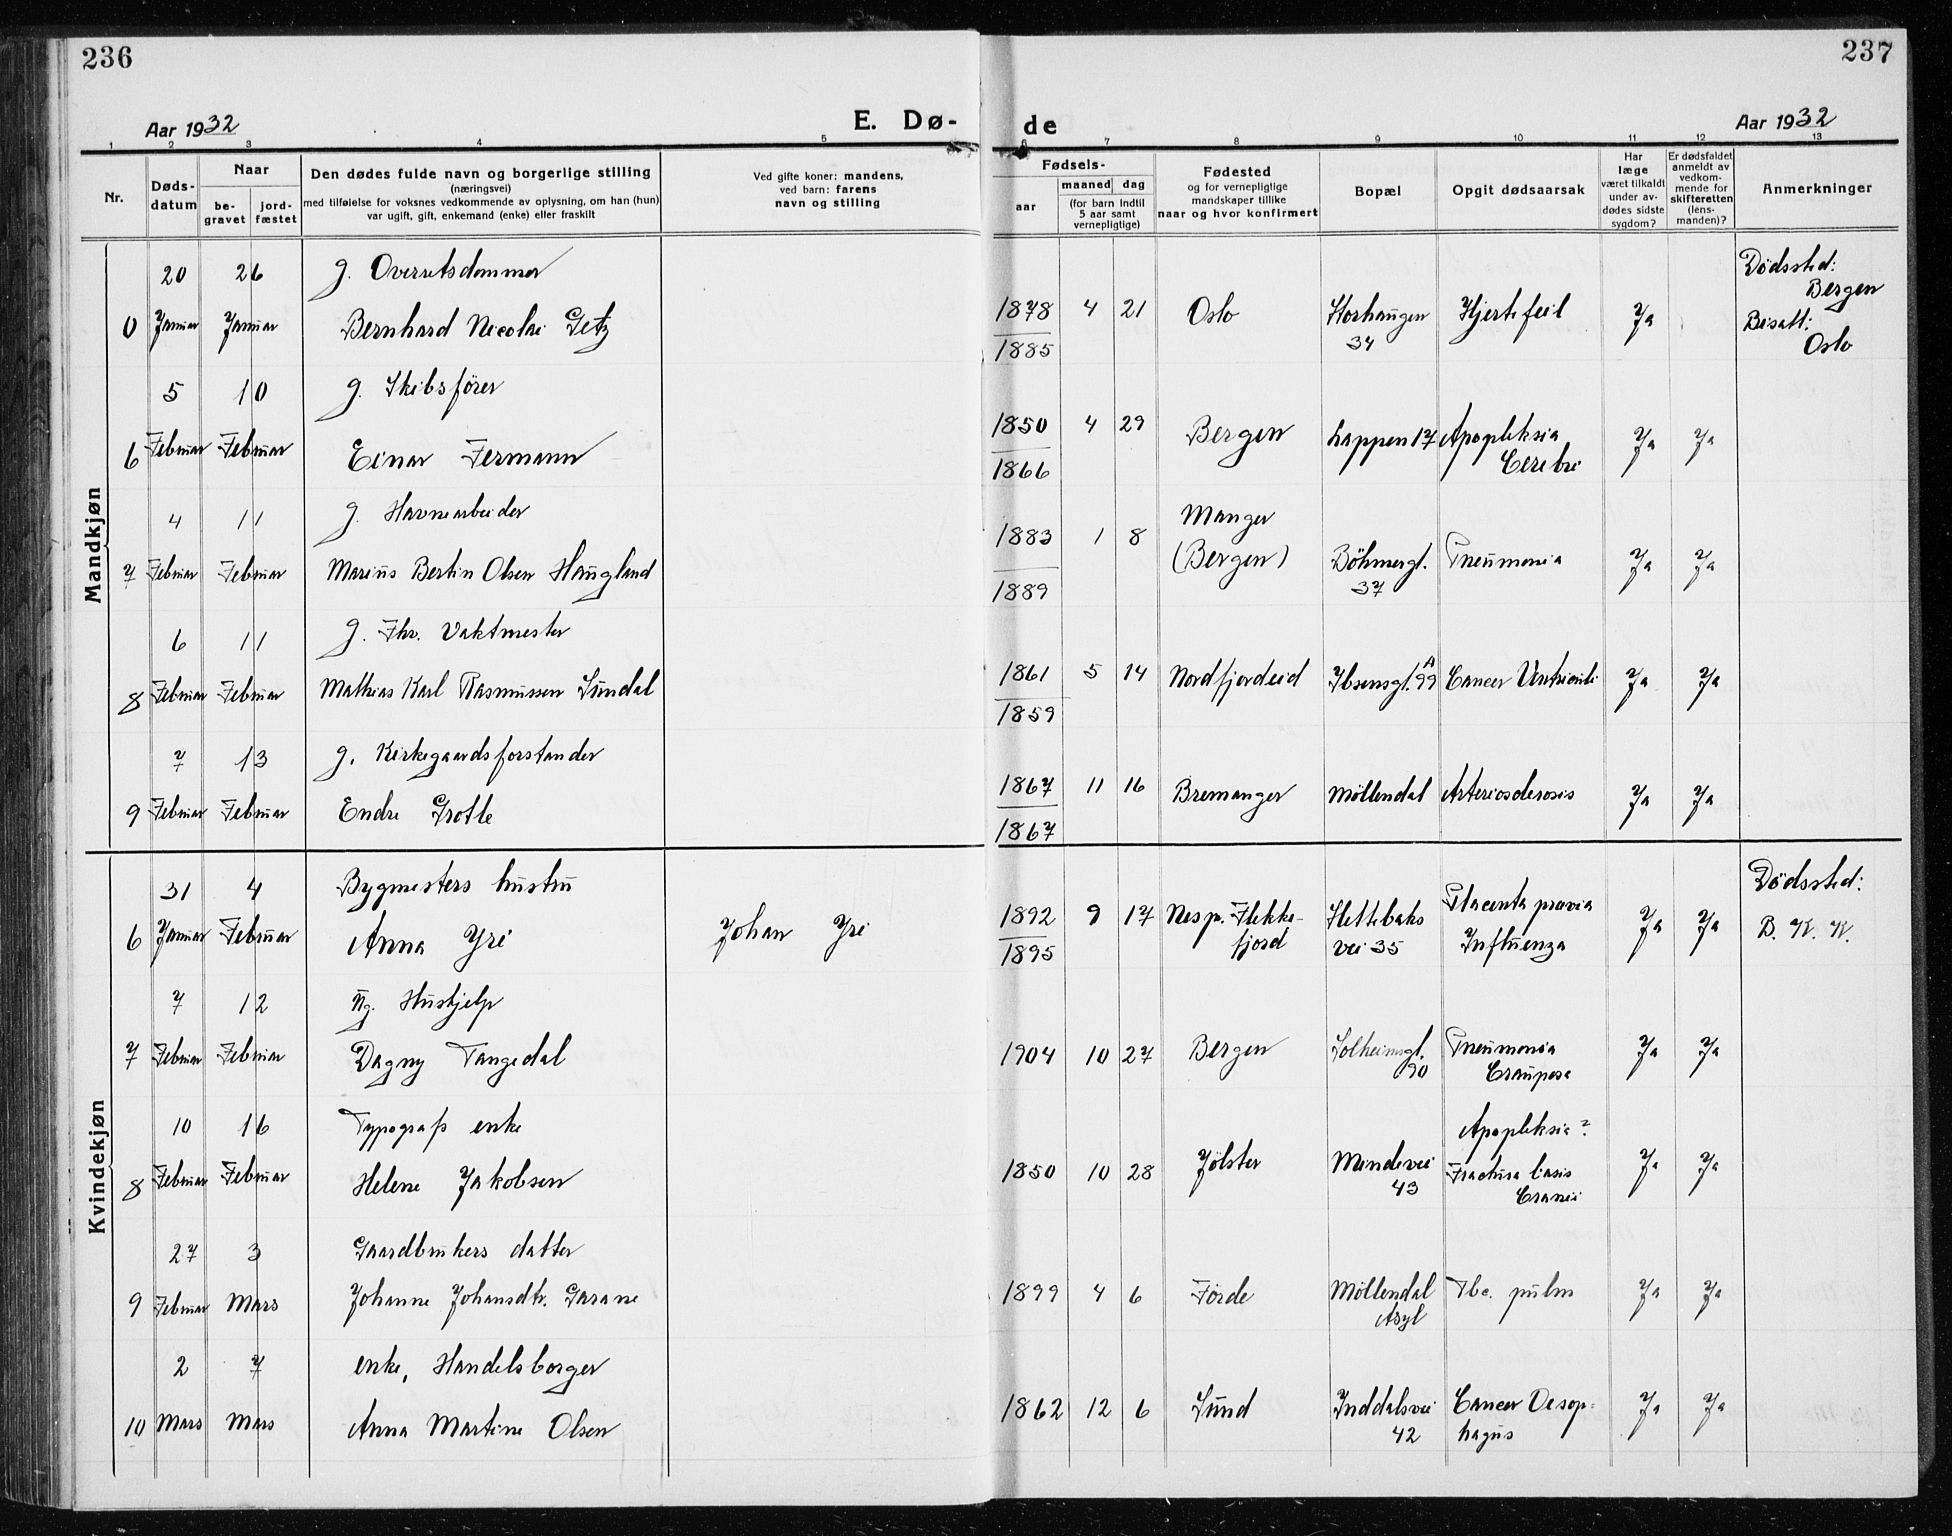 236
237
Aar 1932
E. Dø-
de
Aar 1932
1 2 3 4 5 6 7 8 9 10 11 12 13
Nr.
Døds-
datum
Naar
be-
gravet
jord-
fæstet
Den dødes fulde navn og borgerlige stilling
(næringsvei)
med tilføielse for voksnes vedkommende av oplysning, om han (hun)
var ugift, gift, enkemand (enke) eller fraskilt
Ved gifte koner: mandens,
ved barn: farens
navn og stilling
Fødsels-
aar
maaned dag
(for barn indtil
5 aar samt
vernepligtige)
Fødested
og for vernepligtige
mandskaper tillike
naar og hvor konfirmert
Bopæl
Opgit dødsaarsak
Har
læge
været tilkaldt
under av-
dødes sidste
sygdom?
Er dødsfaldet
anmeldt av
vedkom-
mende for
skifteretten
(lens-
manden)?
Anmerkninger
Mandkjøn
20 26 g. Overretsdommer Dödssted:
Bergen
0 Januar Januar Bernhard Nicolai Getz 1878 4 21 Oslo Storhaugen Hjertefeil Ja Bisatt:
1885 34 Oslo
5 10 g. Skibsförer
6 Februar Februar Einar Fermann 1850 4 29 Bergen Lappen 17 Apopleksia Ja Ja
1866 Cerebri
4 11 g. Havnearbeider Manger
7 Februar Februar Marius Bertin Olsen Haugland 1883 1 8 (Bergen) Böhmergt. Pneumonia Ja Ja
1889 37
6 11 g. Fhv. Vaktmester
8 Februar Februar Mathias Karl Rasmussen Sundal 1861 5 14 Nordfjordeid Ibsensgt. 99 A Cancer Ventriculi Ja Ja
1859
7 13 g. Kirkegaardsforstander
9 Februar Februar Endre Grotle 1867 11 16 Bremanger Möllendal Arteriosclerosis Ja Ja
1867
Kvindekjøn
31 4 Bygmesters hustru Dödssted:
6 Januar Februar Anna Yri Johan Yri 1892 9 17 Nes p. Flekke- Slettebaks Placenta prævia Ja Ja B. K. K.
1895 fjord vei 35 Influenza
7 12 Ug. Hushjelp
7 Februar Februar Dagny Tangedal 1904 10 27 Bergen Solheimsgt. Pneumonia Ja Ja
90 Crouposa
10 16 Typografs enke Apopleksia?
8 Februar Februar Helene Jakobsen 1850 10 28 Jølster Mindevei Fractura basis Ja Ja
43 Cranii
27 3 Gaardbrukers datter
9 Februar Mars Johanne Johansdtr. Garane 1899 4 6 Förde Möllendal Tbc. pulm Ja Ja
Asyl
2 7 enke, Handelsborger
10 Mars Mars Anna Martine Olsen 1862 12 6 Sund Inddalsvei Cancer Oesop- Ja Ja
42 hagus